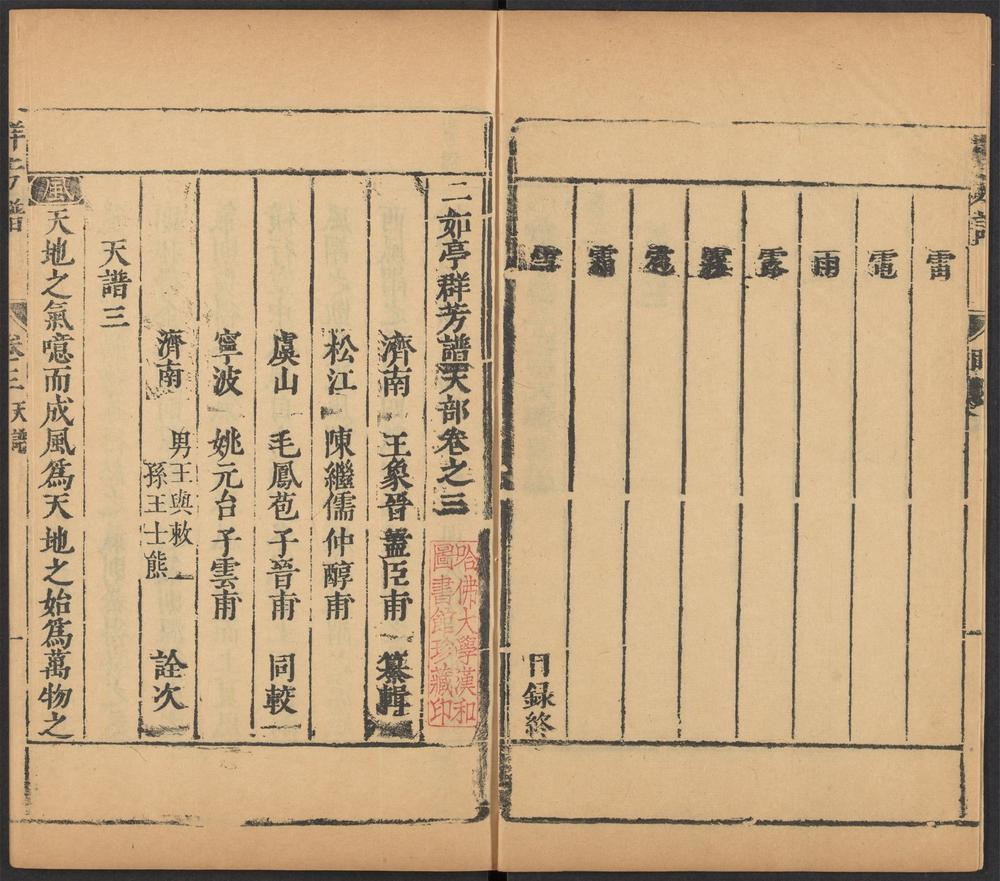 雷
電
雨
露
目録終
二如亭群芳譜天部卷之三
哈佛大學漢和
圖書館珍藏印
濟南 王象晉藎臣甫 纂輯
松江 陳繼儒仲醇甫
虞山 毛鳳苞子晉甫 同較
寧波 姚元台子雲甫
濟南 男王與敕
孫王士熊 詮次
天譜三
風 天地之氣噫而成風爲天地之始爲萬物之
群芳譜 卷三 天譜 一